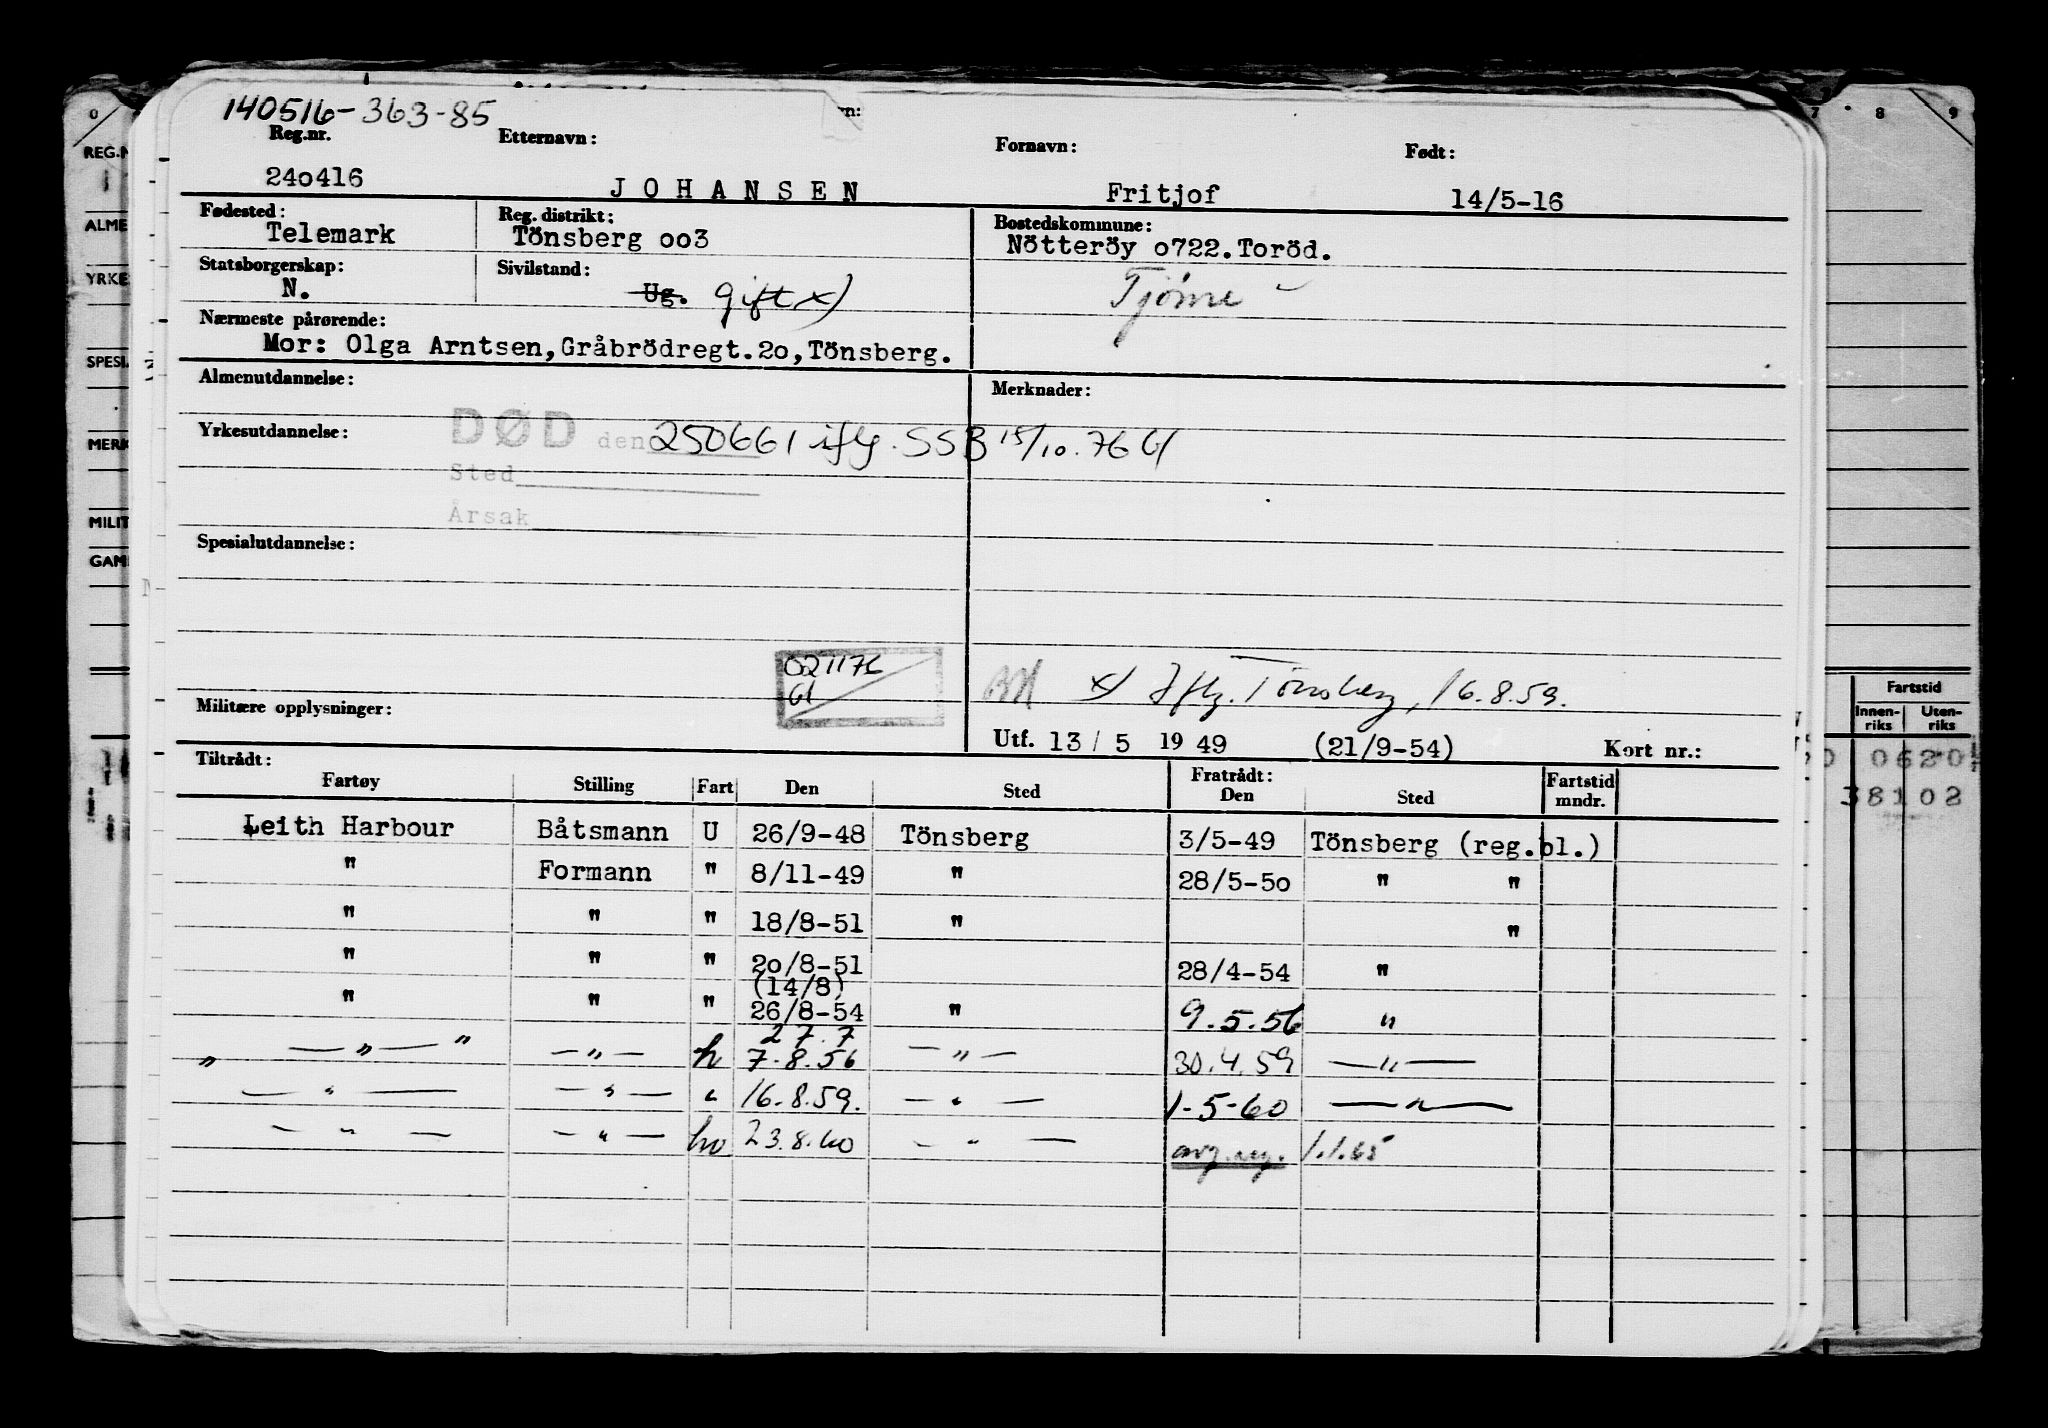 140516-363-85
Reg.nr. Etternavn: Fornavn: Født:
240416 JOHANSEN Fritjof 14/5-16
Fødested: Reg. distrikt: Bostedskommune:
Telemark Tönsberg oo3 Nötteröy o722.Toröd.
Statsborgerskap: Sivilstand: Tjöme
N. Ug. gift x)
Nærmeste pårørende:
Mor: Olga Arntsen,Gråbrödregt.2o,Tönsberg.
Almenutdannelse: Merknader:
Yrkesutdannelse: DØD den 250661 iflg. SSB 15/10.76 Gl
Sted
Årsak
Spesialutdannelse:
021176
Gl
x) Iflg. Tönsberg, 16.8.59.
Militære opplysninger:
Utf. 13/5 1949 (21/9-54) Kort nr.:
Tiltrådt: Fratrådt:
Fartøy Stilling Fart Den Sted Den Sted Fartstid mndr.
Leith Harbour Båtsmann U 26/9-48 Tönsberg 3/5-49 Tönsberg (reg.bl.)
" Formann " 8/11-49 " 28/5-5o " "
" " " 18/8-51 " "
" " " 2o/8-51 28/4-54 "
(14/8)
" " " 26/8-54 " 9.5.56 "
27.7
" — " — " — " — h 7.8.56 — " — 30.4.59 — " —
— " — — " — " 16.8.59. — " — 1-5-60 — " —
— " — — " — hv 23.8.60 — " — avg. reg. 1.1.65
0 7 8 9
REG.N
ALME
YRKE
SPESI
MERK
MILIT
GAM
Fartstid
Innen-riks Uten-riks
0620
38102